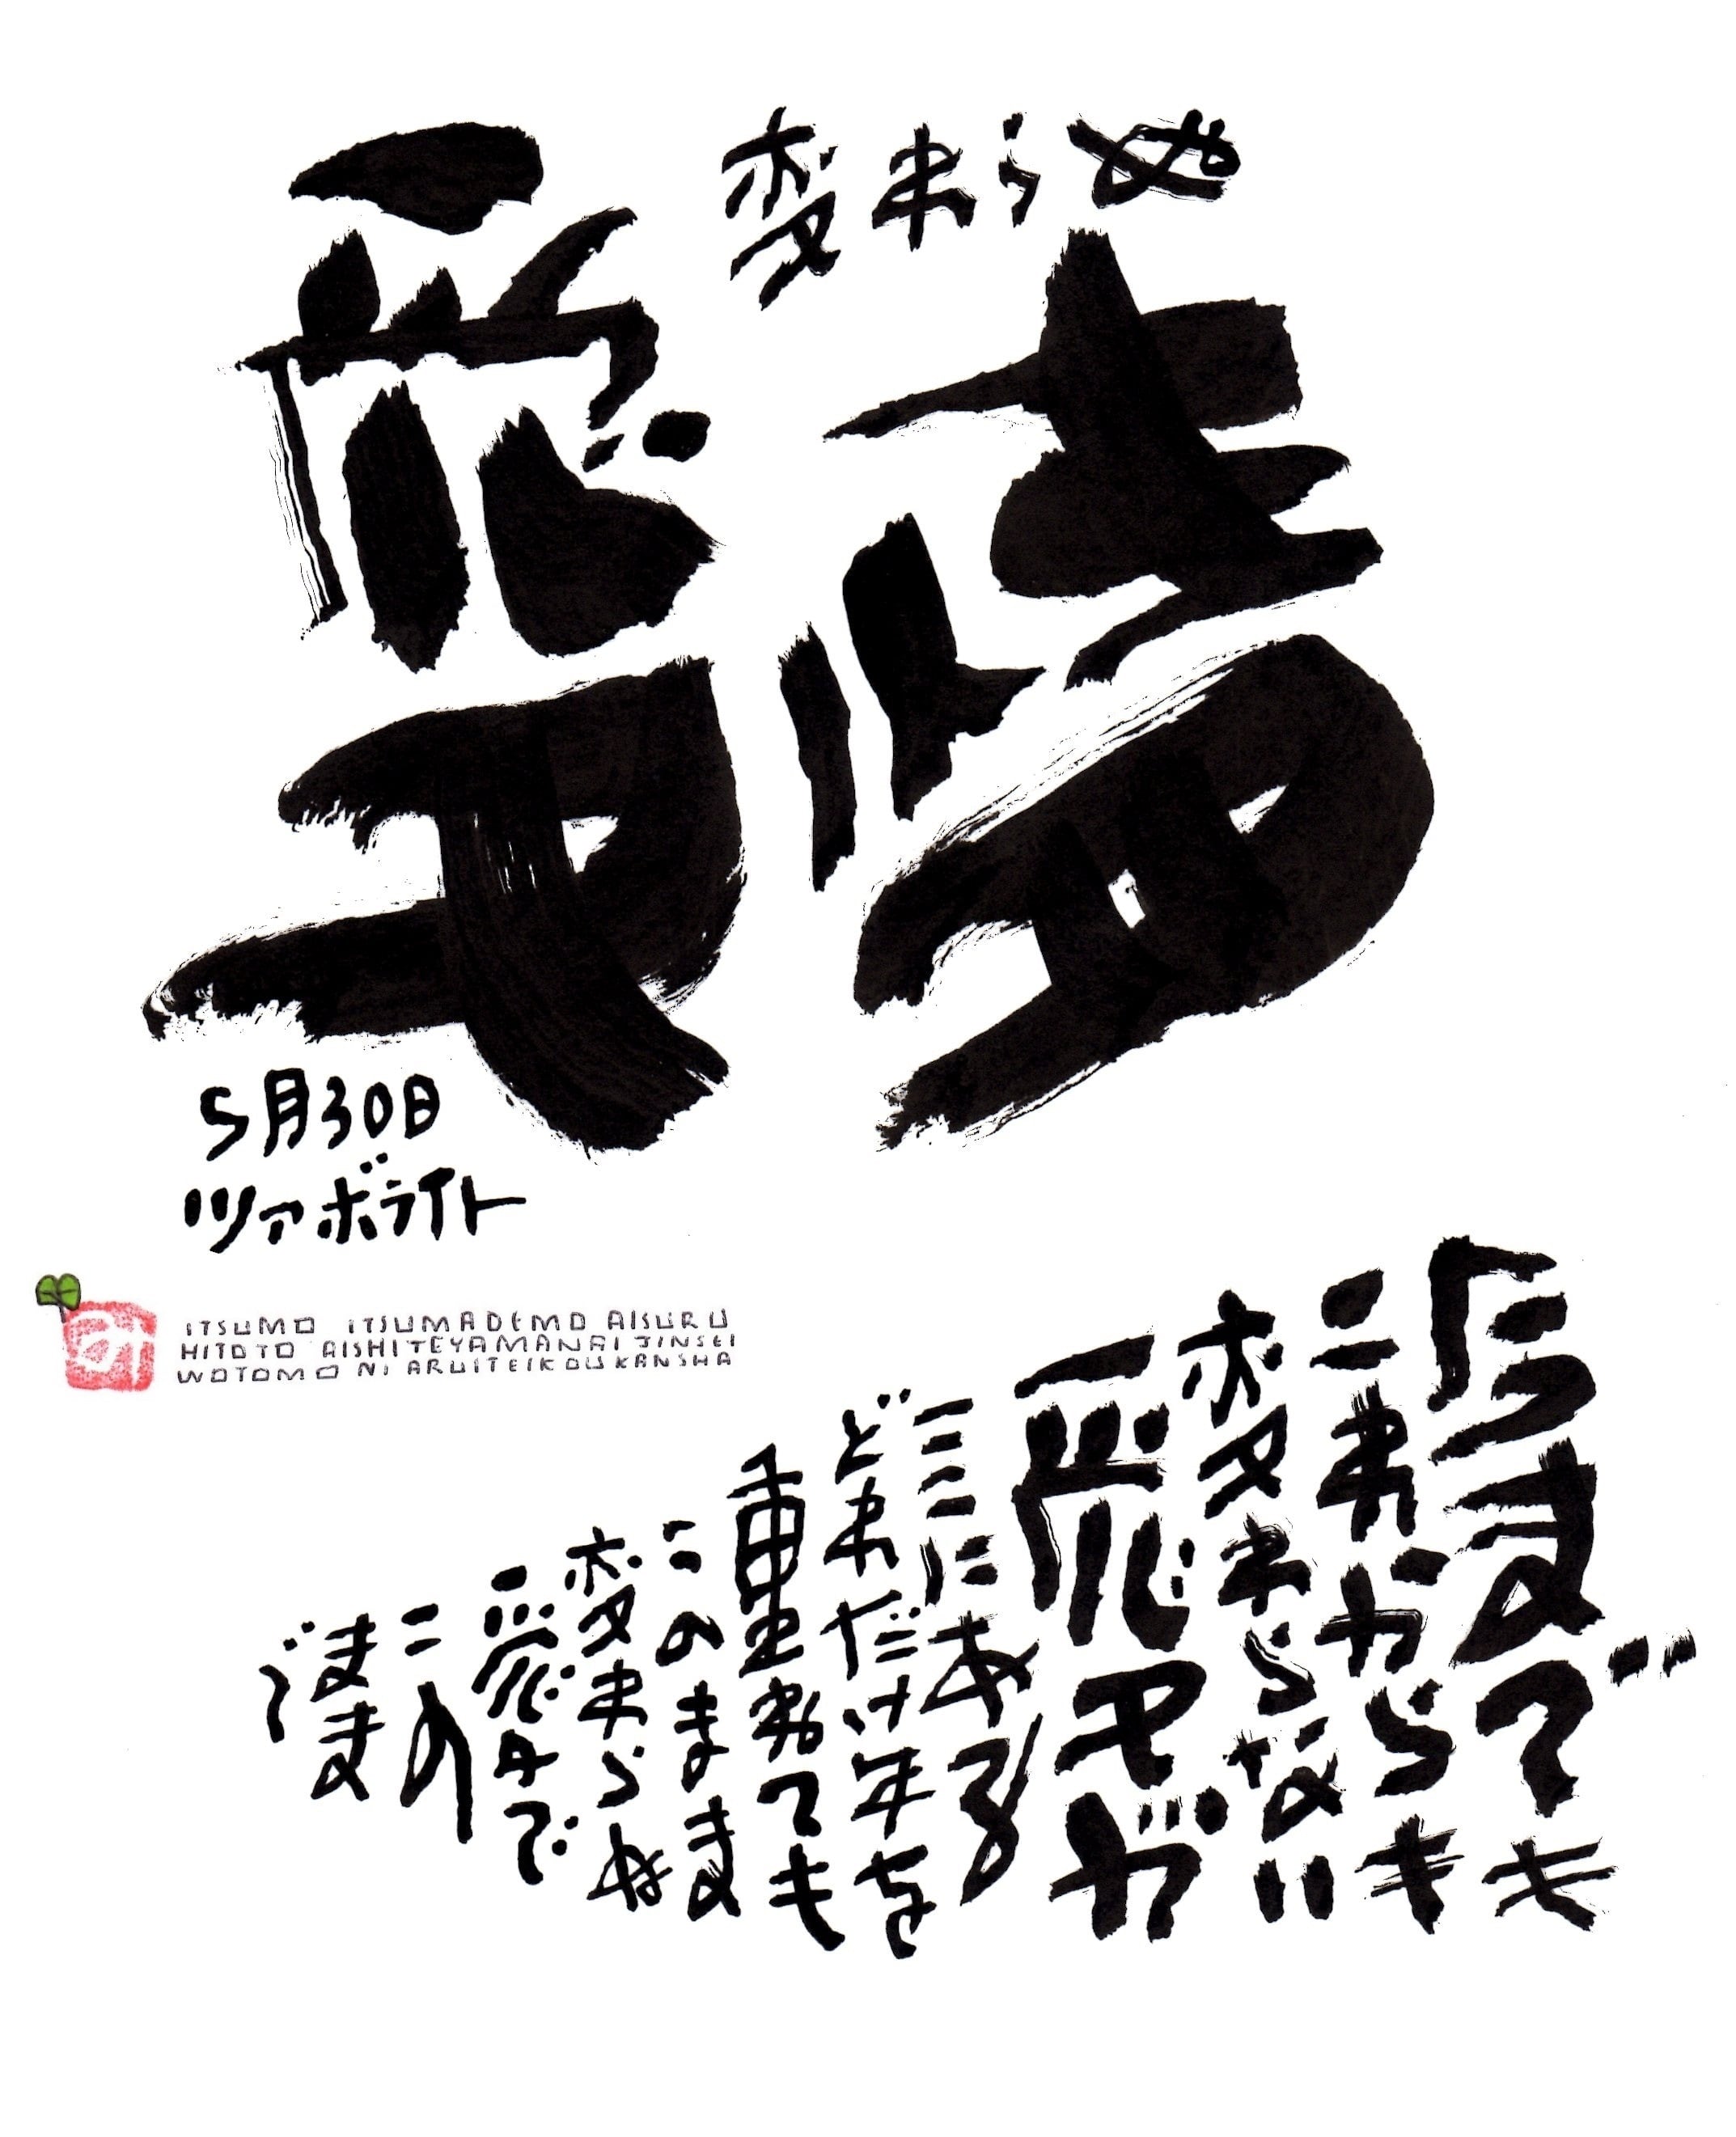 変わらぬ
愛情
5月30日
ツァボライト
ITSUMO ITSUMADEMO AISURU
HITOTO AISHITEYAMANAI JINSEI
WOTOMO NI ARUITEIKOU KANSHA
今までも
これからも
変わらない
愛が
ここにある
どれだけ年を
重ねても
このまま
変わらぬ
愛で
この
まま
で